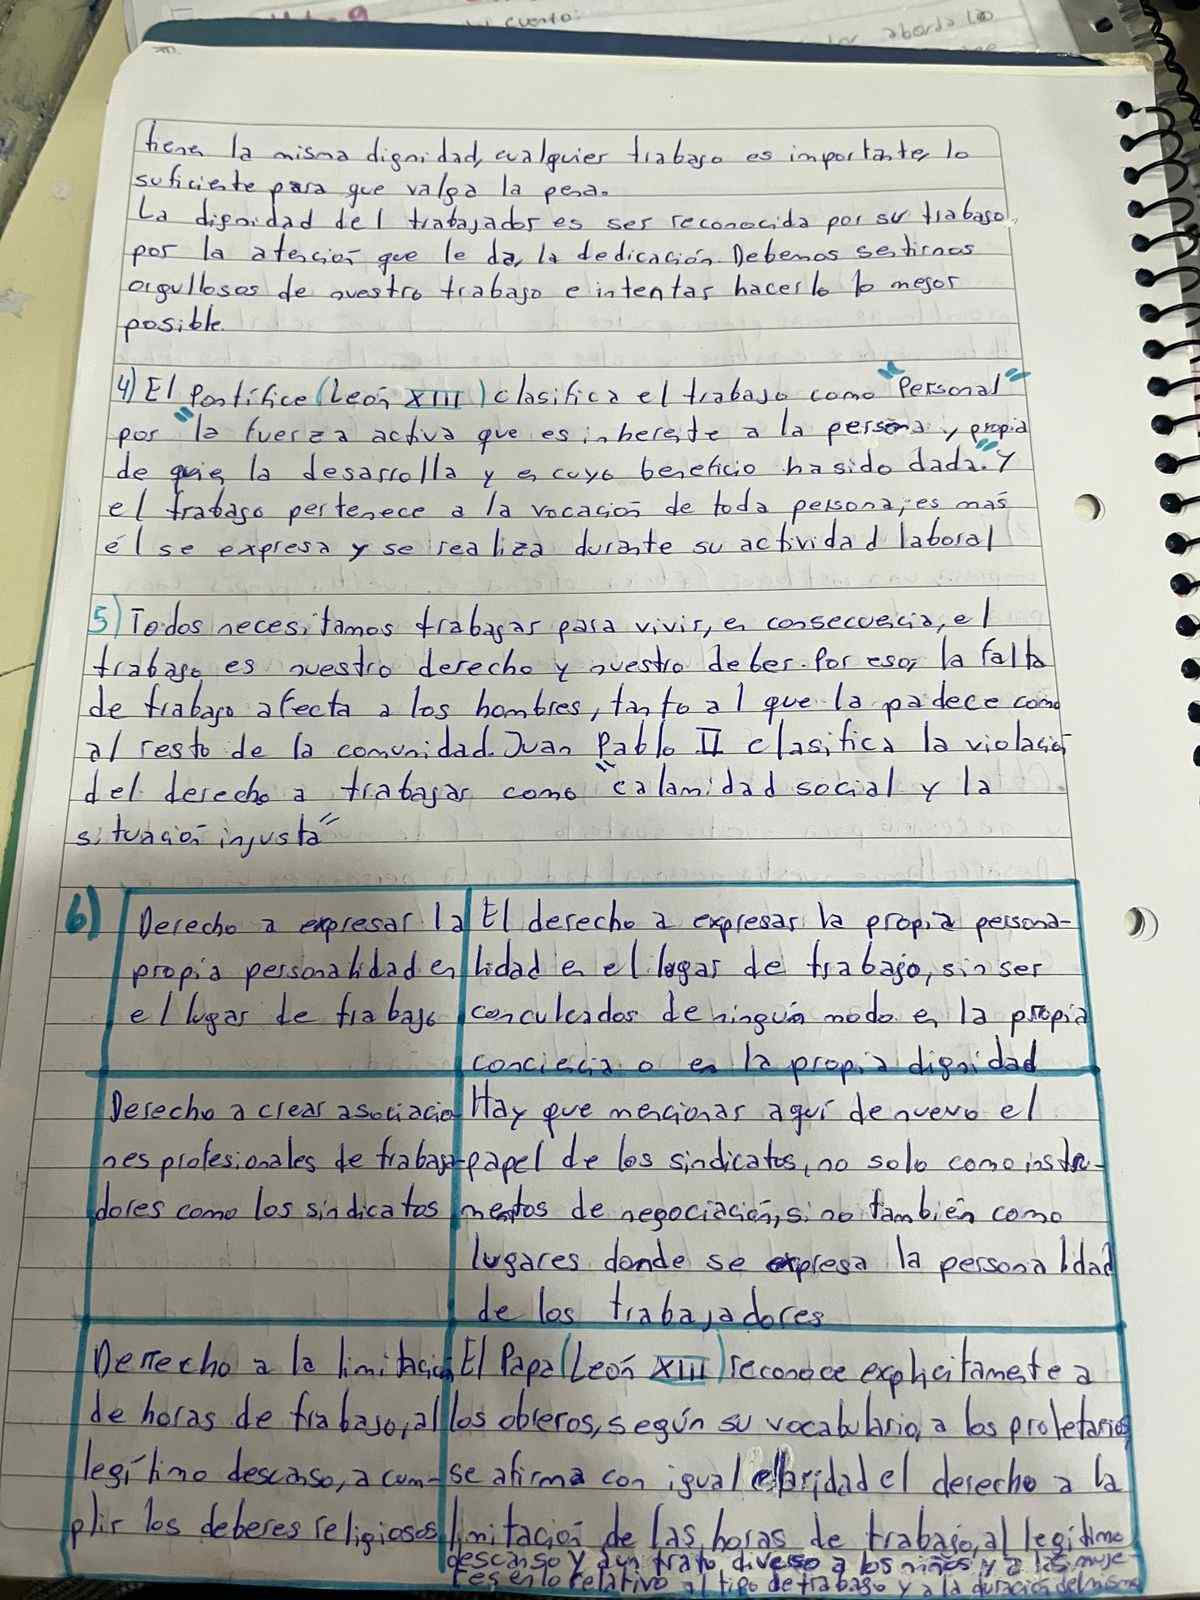 cuento:
abordo las
tiene la misma dignidad, cualquier trabajo es importante, lo
suficiente para que valga la pena.
La dignidad del trabajador es ser reconocida por su trabajo,
por la atención que le da, la dedicación. Debemos sentirnos
orgullosos de nuestro trabajo e intentar hacerlo lo mejor
posible.
4) El Pontífice (León XIII) clasifica el trabajo como "Personal"
por "la fuerza activa que es inherente a la persona y propia
de quien la desarrolla y en cuyo beneficio ha sido dada". Y
el trabajo pertenece a la vocación de toda persona; es mas
él se expresa y se realiza durante su actividad laboral
5) Todos necesitamos trabajar para vivir, en consecuencia, el
trabajo es nuestro derecho y nuestro deber. Por eso, la falta
de trabajo afecta a los hombres, tanto al que la padece como
al resto de la comunidad. Juan Pablo II clasifica la violación
del derecho a trabajar como "calamidad social y la
situación injusta"
6) Derecho a expresar la
propia personalidad en
el lugar de trabajo
El derecho a expresar la propia persona-
lidad en el lugar de trabajo, sin ser
conculcados de ningún modo en la propia
conciencia o en la propia dignidad
Derecho a crear asociacio
nes profesionales de trabaja-
dores como los sindicatos
Hay que mencionar aquí de nuevo el
papel de los sindicatos, no solo como instru-
mentos de negociación, sino también como
lugares donde se expresa la personalidad
de los trabajadores
Derrecho a la limitación
de horas de trabajo, al
legítimo descanso, a cum-
plir los deberes religiosos
El Papa (León XIII) reconoce explicitamente a
los obreros, según su vocabulario, a los proletarios,
se afirma con igual claridad el derecho a la
limitación de las horas de trabajo, al legítimo
descanso y a un trato diverso a los niños y a las muje-
res en lo relativo al tipo de trabajo y a la duración del mismo